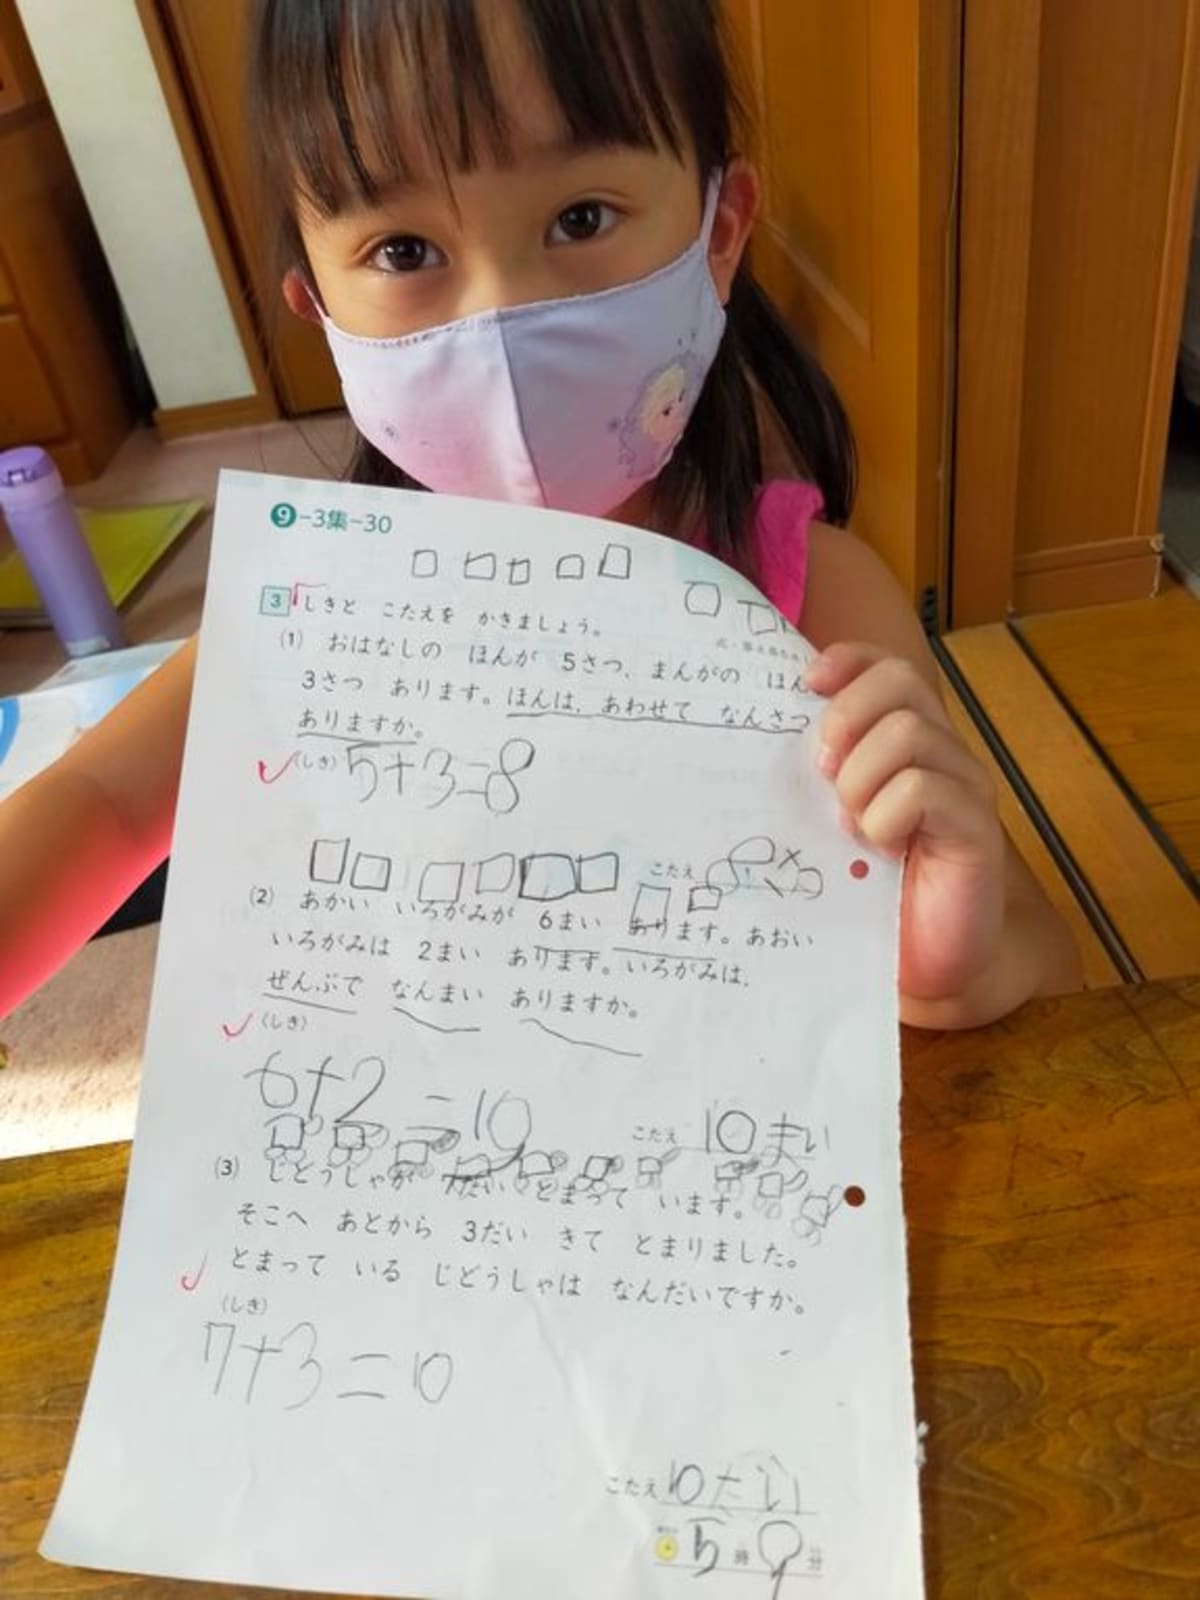 9-3集-30
3 しきと こたえを かきましょう。
(1) おはなしの ほんが 5さつ、まんがの ほん
3さつ あります。ほんは、あわせて なんさつ
ありますか。
(しき) 5+3=8
こたえ
(2) あかい いろがみが 6まい あります。あおい
いろがみは 2まい あります。いろがみは、
ぜんぶで なんまい ありますか。
(しき)
6+2=10
こたえ 10まい
(3) じどうしゃが 7だい とまって います。
そこへ あとから 3だい きて とまりました。
とまって いる じどうしゃは なんだいですか。
(しき)
7+3=10
こたえ 10だい
5時9分